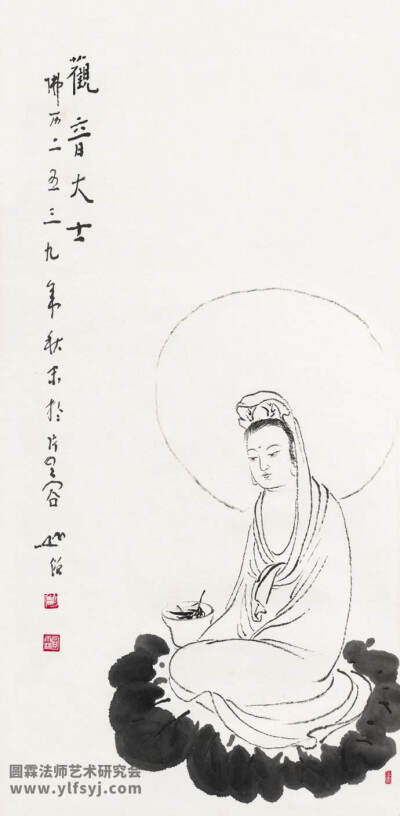 觀音大士
佛历二五三九年秋末於片雲谷
圆霖法师艺术研究会
www.ylfsyj.com